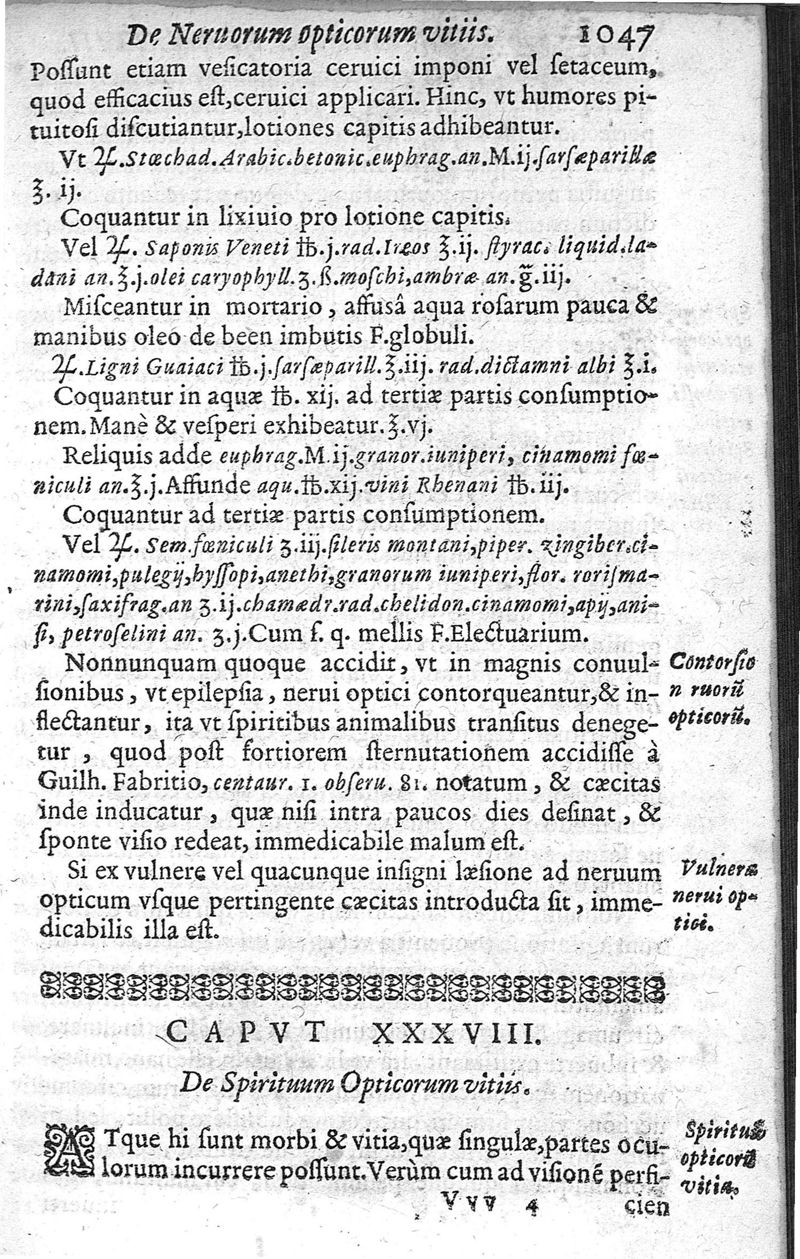 De Neruorum opticorum vitiis. 1047
Poſſunt etiam veſicatoria ceruici imponi vel ſetaceum,
quod efficacius eſt, ceruici applicari. Hinc, vt humores pi-
tuitoſi diſcutiantur, lotiones capitis adhibeantur.
Vt ℞. Stœchad. Arabic. betonic. euphrag. an. M. ij. ſarſæparillæ
℥. ij.
Coquantur in lixiuio pro lotione capitis.
Vel ℞. Saponis Veneti ℔. j. rad. Ireos ℥. ij. ſtyrac. liquid. la-
dani an. ℥. j. olei caryophyll. ʒ. ß. moſchi, ambræ an. g̃. iij.
Miſceantur in mortario, affusâ aqua roſarum pauca &
manibus oleo de been imbutis F. globuli.
℞. Ligni Guaiaci ℔. j. ſarſæparill. ℥. iij. rad. dictamni albi ℥. i.
Coquantur in aquæ ℔. xij. ad tertiæ partis conſumptio-
nem. Manè & veſperi exhibeatur. ℥. vj.
Reliquis adde euphrag. M. ij. granor. iuniperi, cinamomi fœ-
niculi an. ℥. j. Affunde aqu. ℔. xij. vini Rhenani ℔. iij.
Coquantur ad tertiæ partis conſumptionem.
Vel ℞. Sem. fœniculi ʒ. iij. ſileris montani, piper. zingiber. ci-
namomi, pulegij, hyſſopi, anethi, granorum iuniperi, flor. roriſma-
rini, ſaxifrag. an ʒ. ij. chamædr. rad. chelidon. cinamomi, apij, ani-
ſi, petroſelini an. ʒ. j. Cum ſ. q. mellis F. Electuarium.
Nonnunquam quoque accidit, vt in magnis conuul-
ſionibus, vt epilepſia, nerui optici contorqueantur, & in-
flectantur, ita vt ſpiritibus animalibus tranſitus denege-
tur, quod poſt fortiorem ſternutationem accidiſſe à
Guilh. Fabritio, centaur. 1. obſeru. 81. notatum, & cæcitas
inde inducatur, quæ niſi intra paucos dies deſinat, &
ſponte viſio redeat, immedicabile malum eſt.
Contorſio
n ruorū
opticorū.
Si ex vulnere vel quacunque inſigni læſione ad neruum
opticum vſque pertingente cæcitas introducta ſit, imme-
dicabilis illa eſt.
Vulnera
nerui op-
tici.
CAPVT XXXVIII.
De Spirituum Opticorum vitiis.
ATque hi ſunt morbi & vitia, quæ ſingulæ, partes ocu-
lorum incurrere poſſunt. Verùm cum ad viſionē perfi-
Spirituū
opticorū
vitia.
Vvv 4 cien